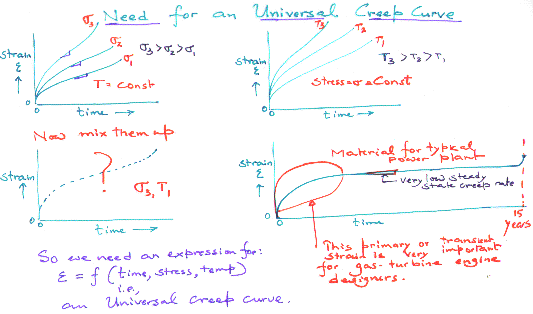 Need for an Universal Creep Curve
σ3
σ2
σ1
σ3 > σ2 > σ1
T = const
strain
ε
↑
0
0
time →
T3
T2
T1
T3 > T2 > T1
Stress = σ = Const
strain
ε
↑
0
0
time →
Now mix them up
?
σ3, T1
strain
ε
↑
0
0
time →
Material for typical
power plant
very low steady
state creep rate
strain
ε
↑
0
0
time
15
years
This primary or transient
strain is very important
for gas-turbine engine
designers.
So we need an expression for:
ε = f (time, stress, temp)
i.e.,
an Universal creep curve.